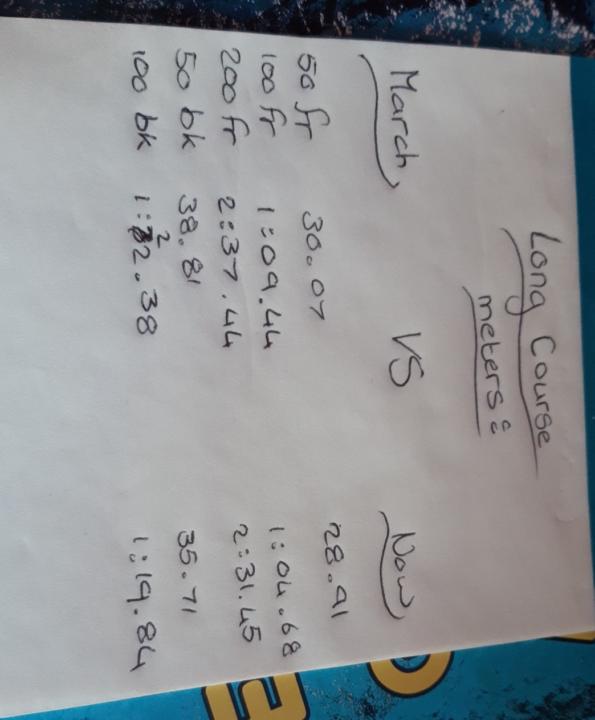 Long Course
meters:
March VS Now
50 fr 30.07 28.91
100 fr 1:09.44 1:04.68
200 fr 2:37.44 2:31.45
50 bk 38.81 35.71
100 bk 1:22.38 1:19.84